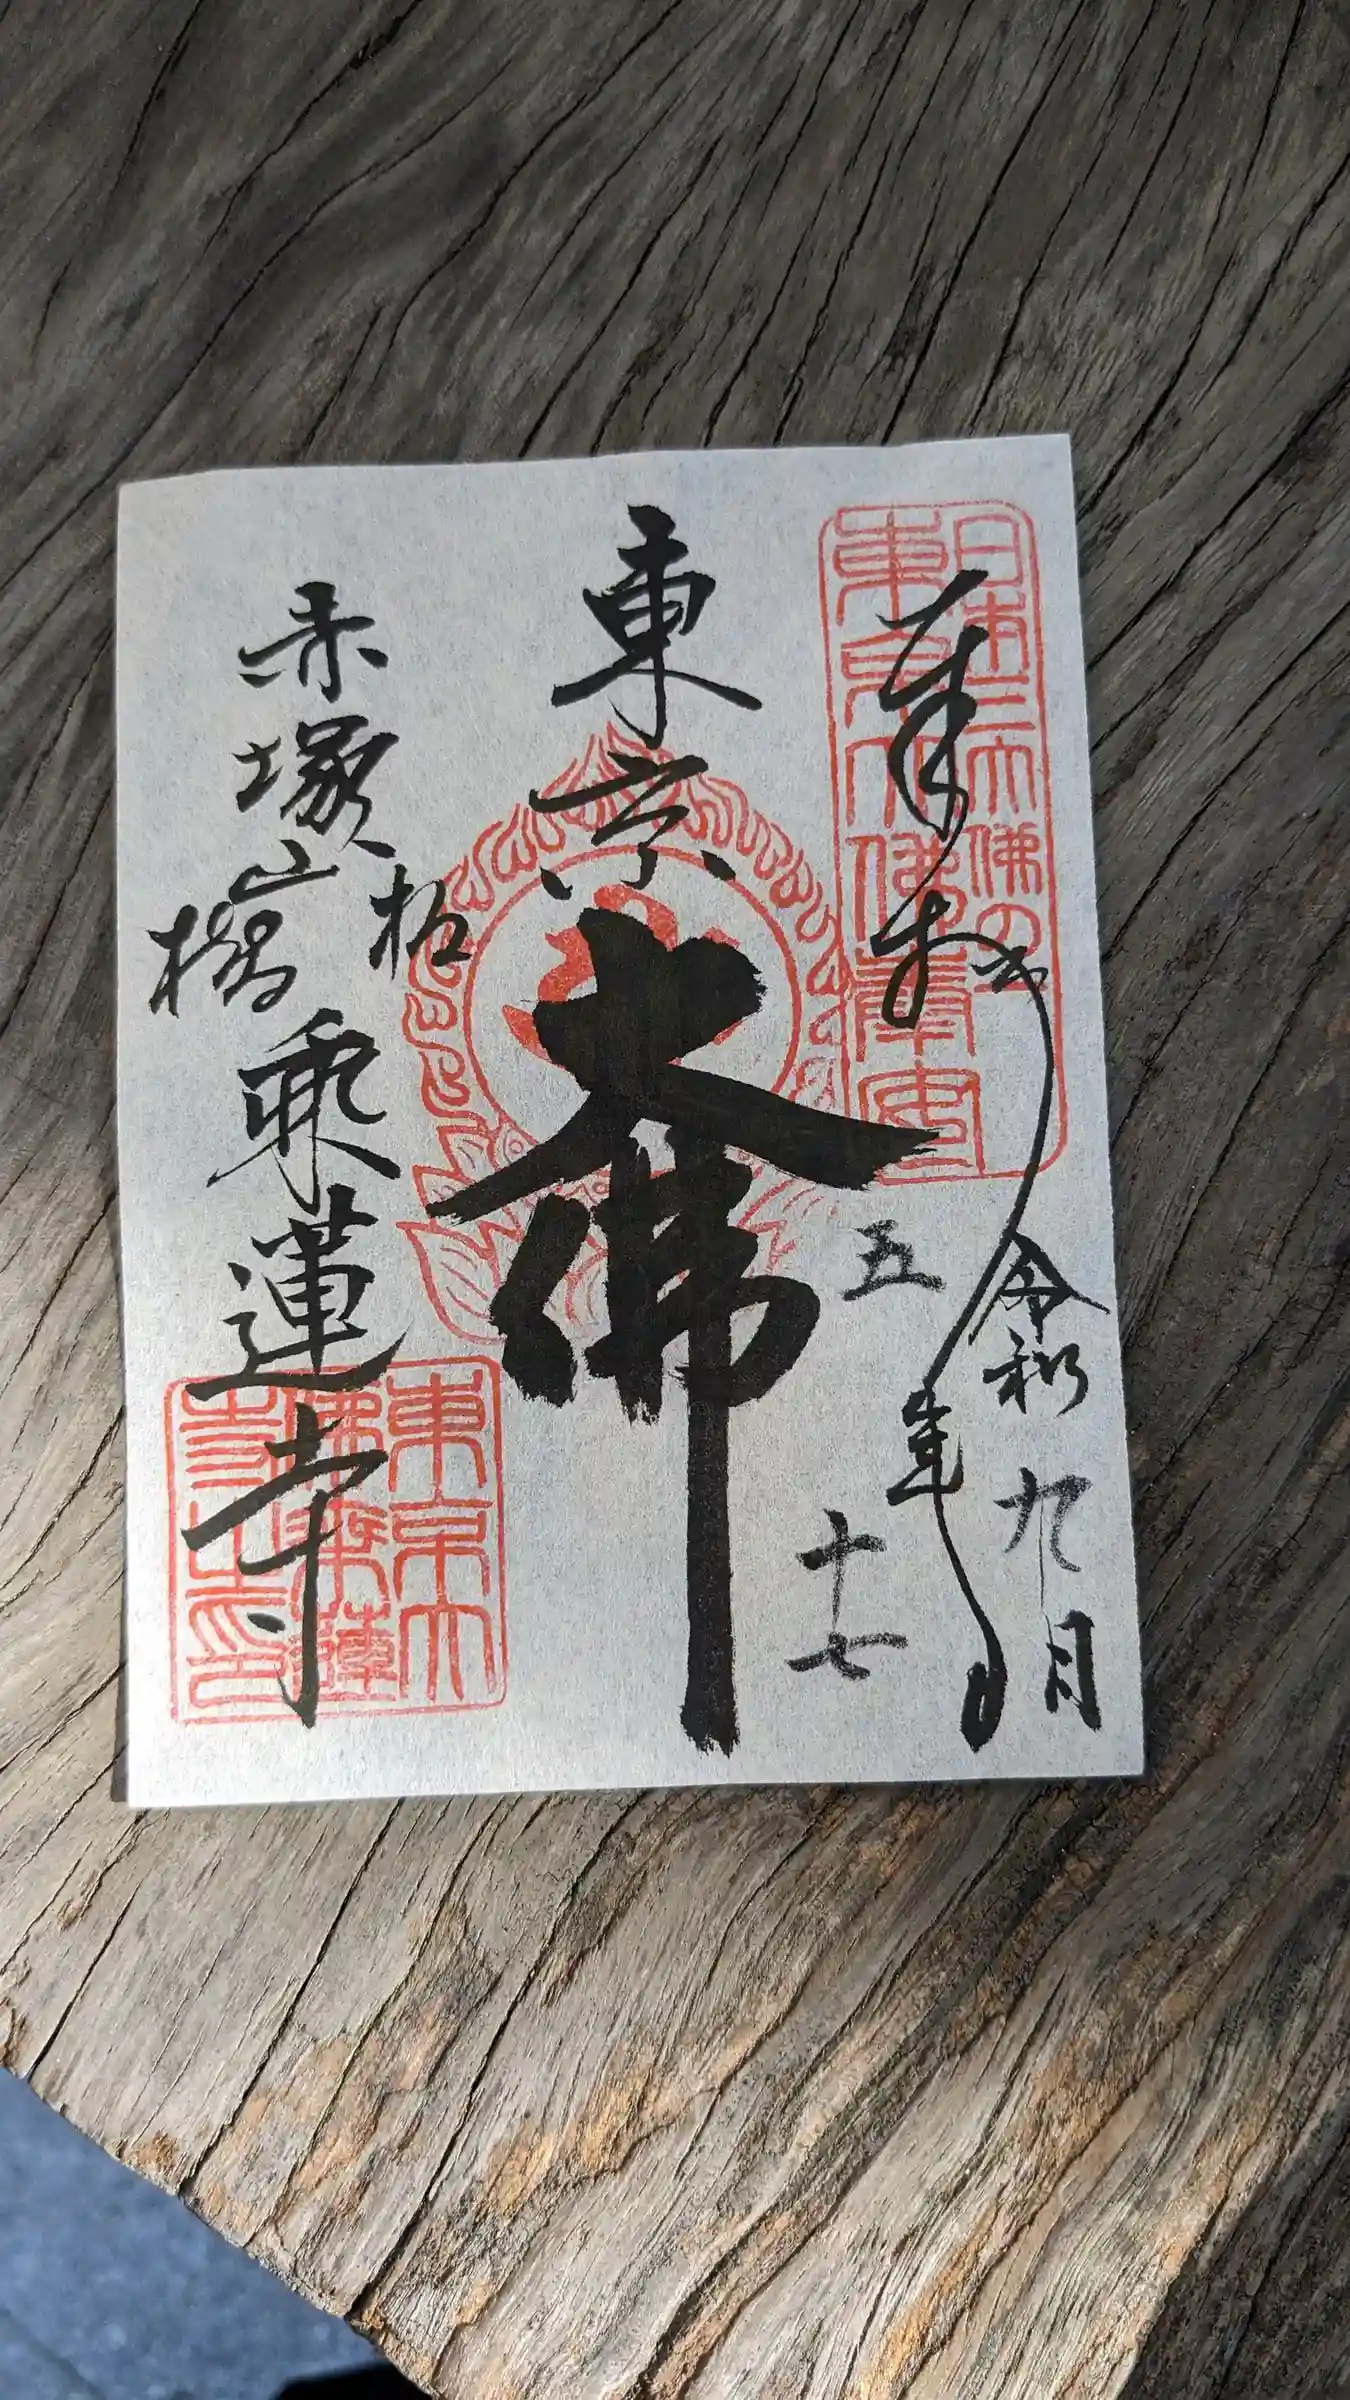 日本三大佛の
東京大佛奉安
奉拝
令和五年
九月十七日
東京大佛
赤塚山
板橋
乘蓮寺
東京大
佛乘蓮
寺之印